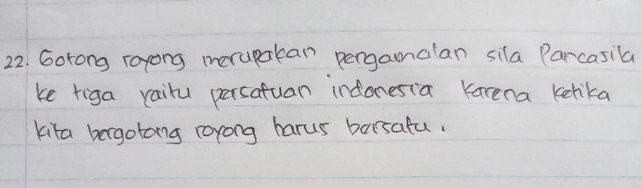 22. Gotong royong merupakan pengamalan sila Pancasila
ke tiga yaitu persatuan indonesia karena ketika
kita bergotong royong harus bersatu.